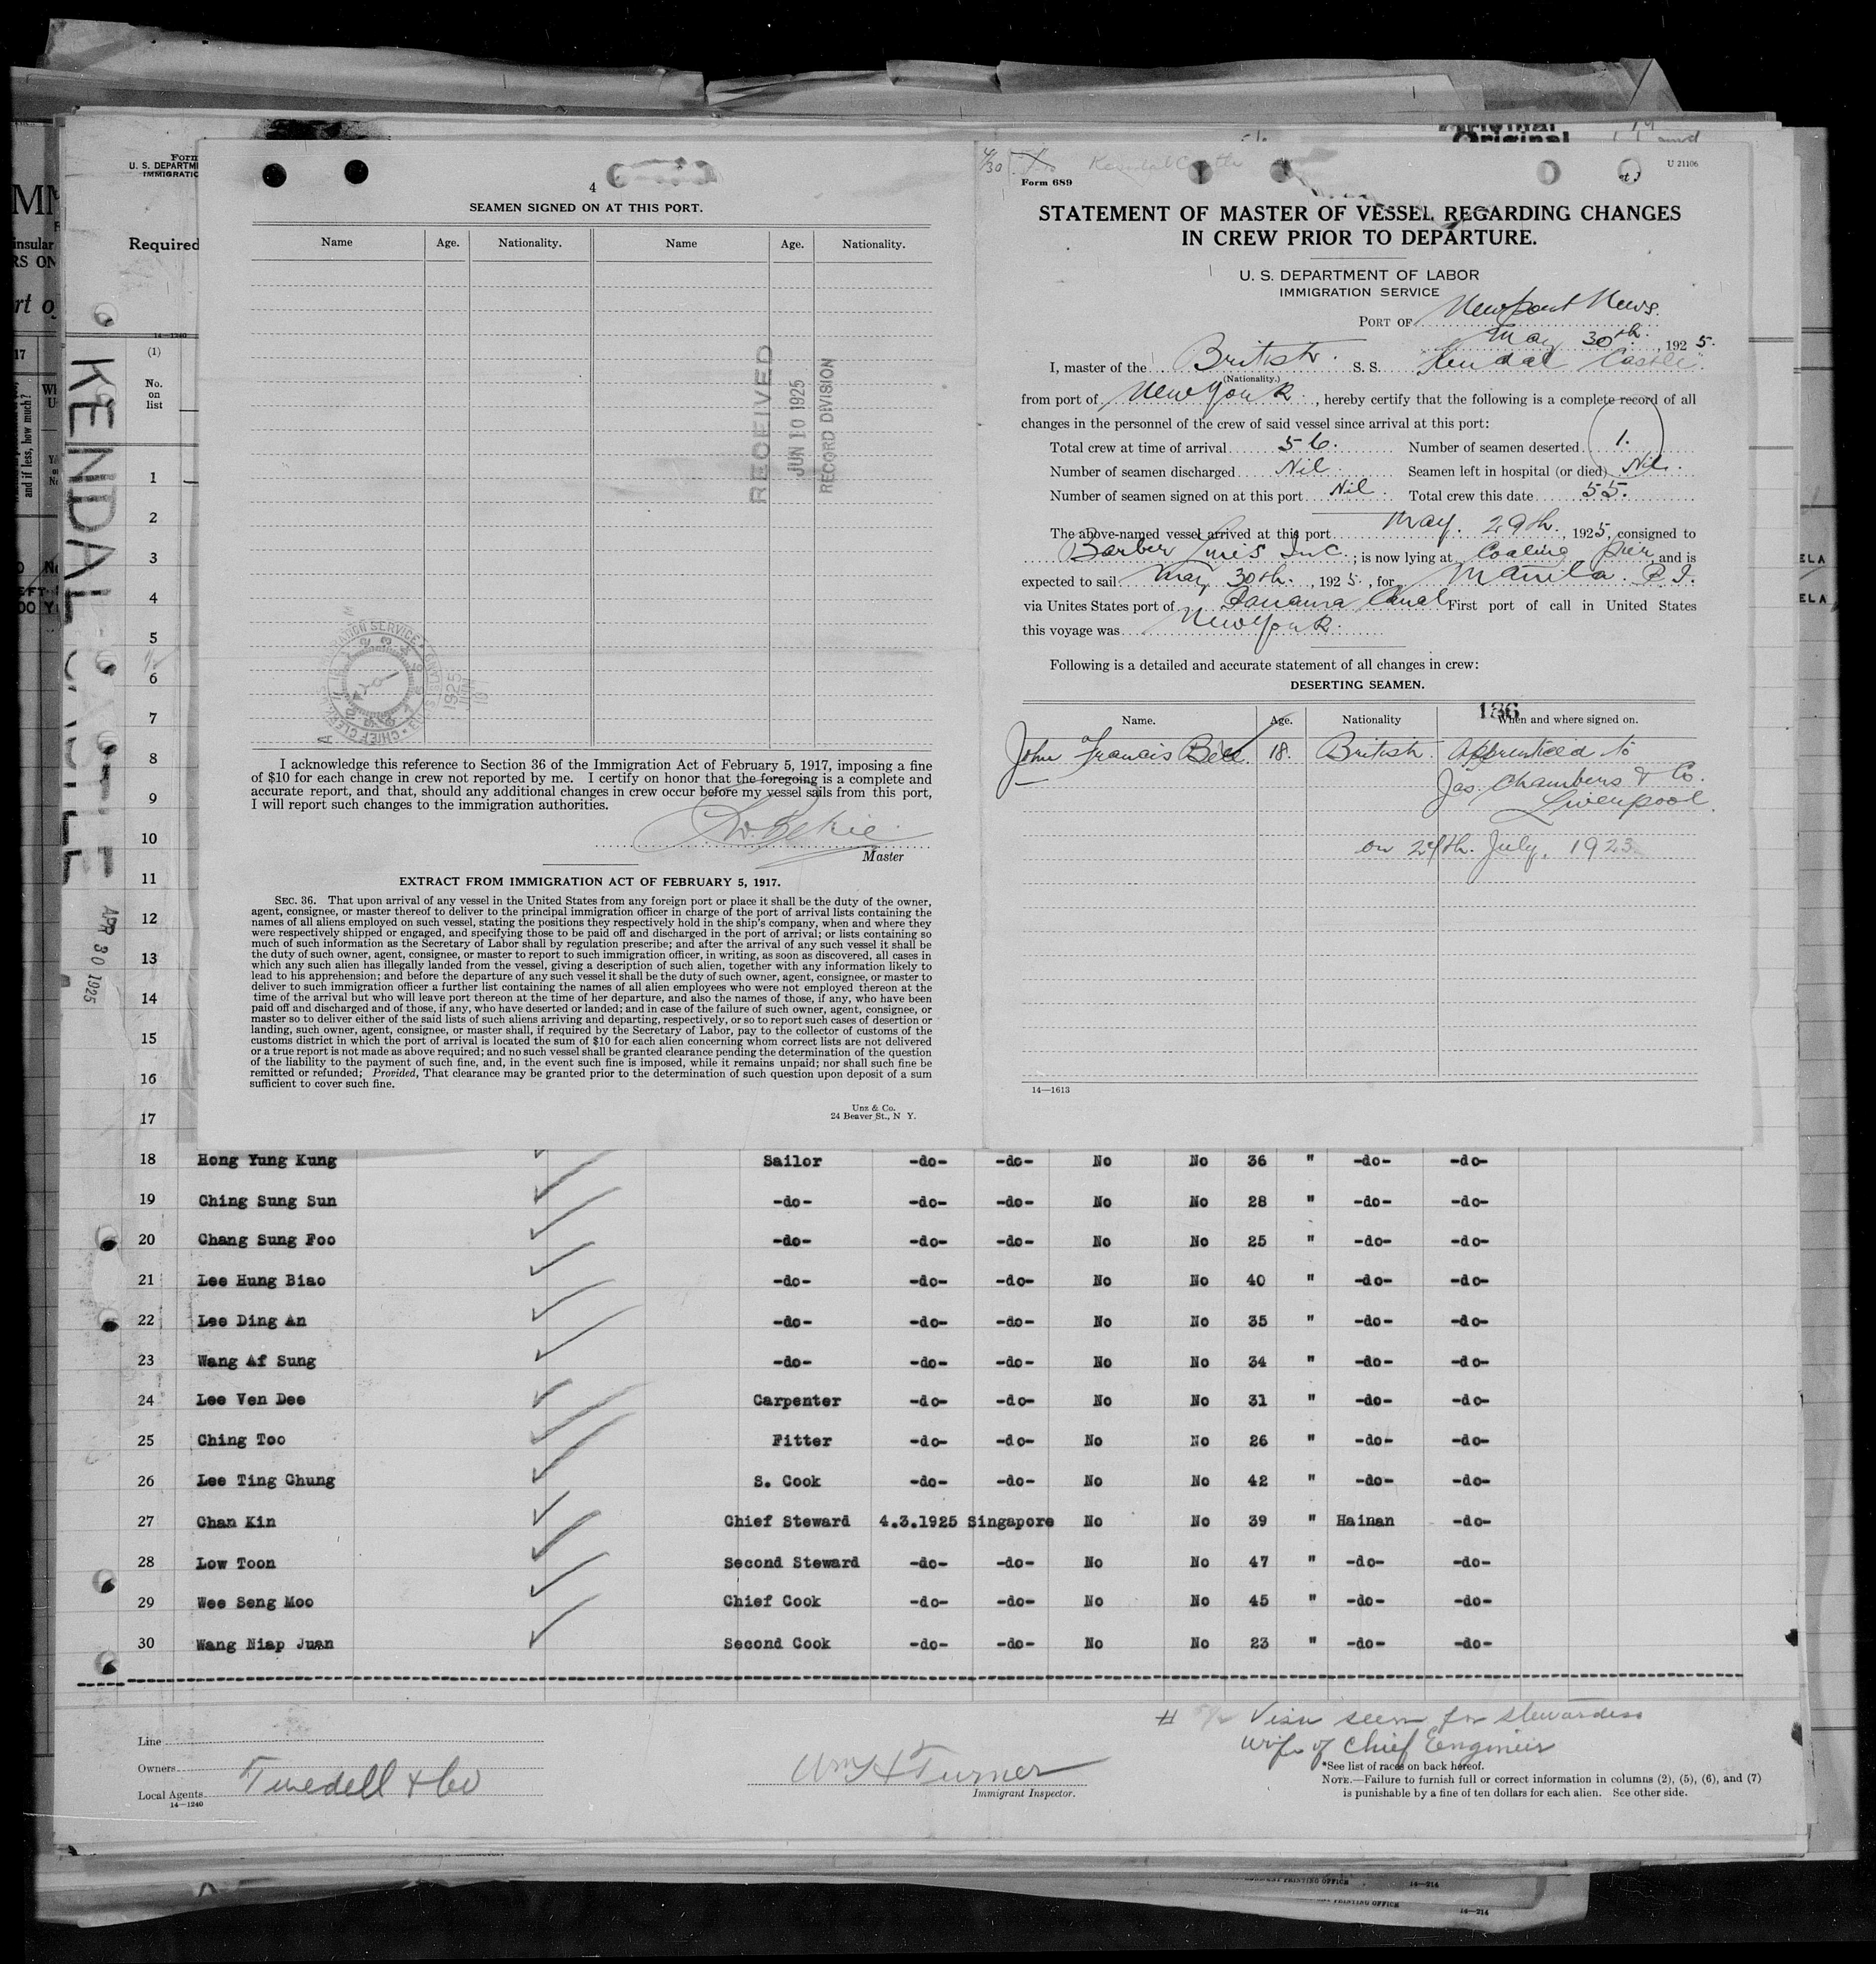 Original
U. S. DEPARTM
IMMIGRATIO
Required
14—1240
(1)
No.
on
list
KENDAL CASTLE
APR 30 1925
4
SEAMEN SIGNED ON AT THIS PORT.
Name Age. Nationality. Name Age. Nationality.
RECEIVED
JUN 10 1925
RECORD DIVISION
I acknowledge this reference to Section 36 of the Immigration Act of February 5, 1917, imposing a fine
of $10 for each change in crew not reported by me. I certify on honor that the foregoing is a complete and
accurate report, and that, should any additional changes in crew occur before my vessel sails from this port,
I will report such changes to the immigration authorities.
Master
EXTRACT FROM IMMIGRATION ACT OF FEBRUARY 5, 1917.
SEC. 36. That upon arrival of any vessel in the United States from any foreign port or place it shall be the duty of the owner,
agent, consignee, or master thereof to deliver to the principal immigration officer in charge of the port of arrival lists containing the
names of all aliens employed on such vessel, stating the positions they respectively hold in the ship's company, when and where they
were respectively shipped or engaged, and specifying those to be paid off and discharged in the port of arrival; or lists containing so
much of such information as the Secretary of Labor shall by regulation prescribe; and after the arrival of any such vessel it shall be
the duty of such owner, agent, consignee, or master to report to such immigration officer, in writing, as soon as discovered, all cases in
which any such alien has illegally landed from the vessel, giving a description of such alien, together with any information likely to
lead to his apprehension; and before the departure of any such vessel it shall be the duty of such owner, agent, consignee, or master to
deliver to such immigration officer a further list containing the names of all alien employees who were not employed thereon at the
time of the arrival but who will leave port thereon at the time of her departure, and also the names of those, if any, who have been
paid off and discharged and of those, if any, who have deserted or landed; and in case of the failure of such owner, agent, consignee, or
master so to deliver either of the said lists of such aliens arriving and departing, respectively, or so to report such cases of desertion or
landing, such owner, agent, consignee, or master shall, if required by the Secretary of Labor, pay to the collector of customs of the
customs district in which the port of arrival is located the sum of $10 for each alien concerning whom correct lists are not delivered
or a true report is not made as above required; and no such vessel shall be granted clearance pending the determination of the question
of the liability to the payment of such fine, and, in the event such fine is imposed, while it remains unpaid; nor shall such fine be
remitted or refunded; Provided, That clearance may be granted prior to the determination of such question upon deposit of a sum
sufficient to cover such fine.
Unz & Co.
24 Beaver St., N Y.
4/30 Kendal Castle
U 21106
Form 689
STATEMENT OF MASTER OF VESSEL REGARDING CHANGES
IN CREW PRIOR TO DEPARTURE.
U. S. DEPARTMENT OF LABOR
IMMIGRATION SERVICE
PORT OF Newport News.
May 30th. , 1925.
I, master of the British. S. S. Kendal Castle"
(Nationality.)
from port of New York , hereby certify that the following is a complete record of all
changes in the personnel of the crew of said vessel since arrival at this port:
Total crew at time of arrival 56. Number of seamen deserted 1.
Number of seamen discharged Nil. Seamen left in hospital (or died) Nil.
Number of seamen signed on at this port Nil. Total crew this date 55.
The above-named vessel arrived at this port May. 29th. , 1925, consigned to
Barber Lines Inc. ; is now lying at Coaling Pier, and is
expected to sail May 30th. , 1925, for Manila. P.I.
via Unites States port of Panama Canal First port of call in United States
this voyage was New York.
Following is a detailed and accurate statement of all changes in crew:
DESERTING SEAMEN.
136
Name. Age. Nationality When and where signed on.
John Francis Bell. 18. British. Apprenticed to
Jas. Chambers & Co.
Liverpool.
on 24th. July, 1923
14—1613
1
2
3
4
5
6
7
8
9
10
11
12
13
14
15
16
17
18 Hong Yung Kung Sailor -do- -do- No No 36 " -do- -do-
19 Ching Sung Sun -do- -do- -do- No No 28 " -do- -do-
20 Chang Sung Foo -do- -do- -do- No No 25 " -do- -do-
21 Lee Hung Biao -do- -do- -do- No No 40 " -do- -do-
22 Lee Ding An -do- -do- -do- No No 35 " -do- -do-
23 Wang Af Sung -do- -do- -do- No No 34 " -do- -do-
24 Lee Ven Dee Carpenter -do- -do- No No 31 " -do- -do-
25 Ching Too Fitter -do- -do- No No 26 " -do- -do-
26 Lee Ting Chung S. Cook -do- -do- No No 42 " -do- -do-
27 Chan Kin Chief Steward 4.3.1925 Singapore No No 39 " Hainan -do-
28 Low Toon Second Steward -do- -do- No No 47 " -do- -do-
29 Wee Seng Moo Chief Cook -do- -do- No No 45 " -do- -do-
30 Wang Niap Juan Second Cook -do- -do- No No 23 " -do- -do-
# Visa seen for stewardess
wife of Chief Engineer
Line
Owners
Local Agents Tweedell & Co
14—1240
Wm H Turner
Immigrant Inspector.
*See list of races on back hereof.
NOTE.—Failure to furnish full or correct information in columns (2), (5), (6), and (7)
is punishable by a fine of ten dollars for each alien. See other side.
PRINTING OFFICE 14—214
PRINTING OFFICE
14—214